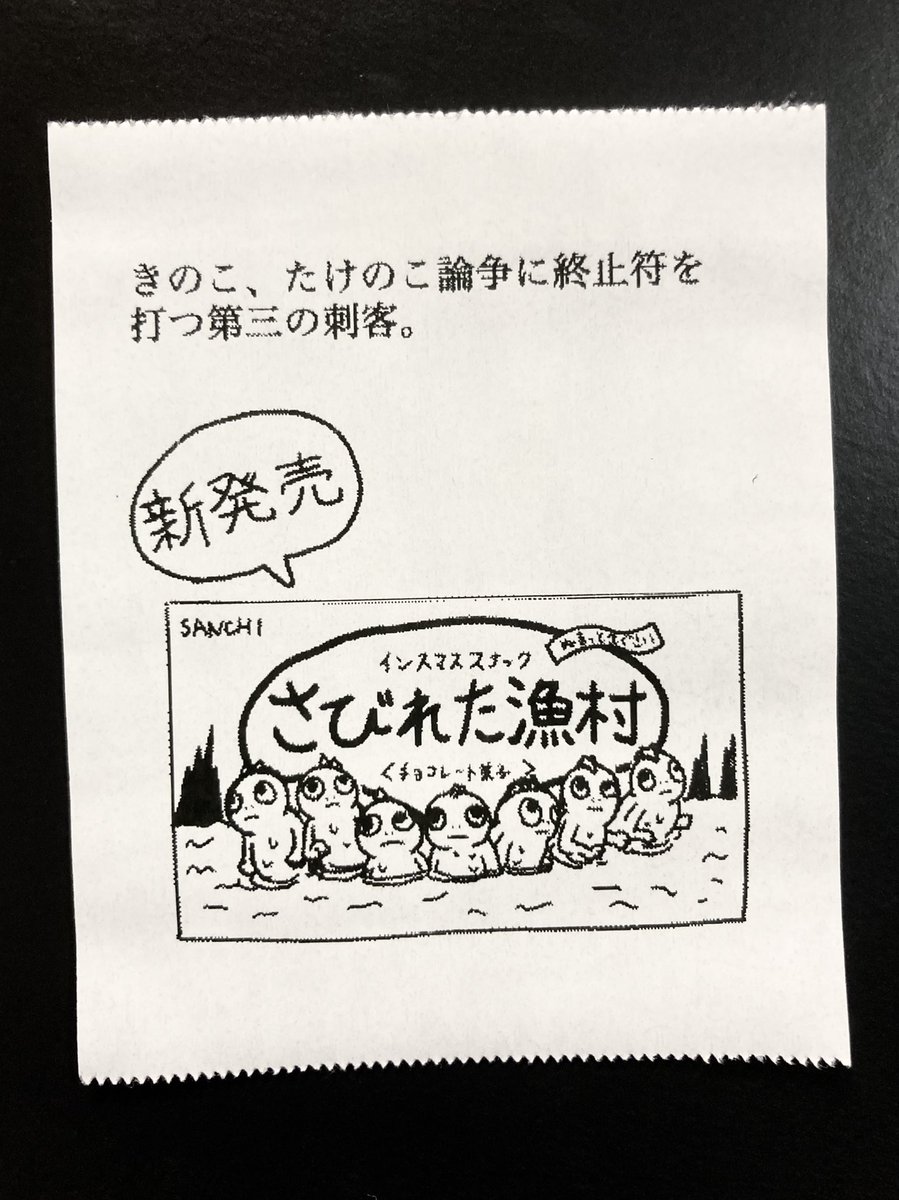 きのこ、たけのこ論争に終止符を
打つ第三の刺客。
新発売
SANCHI
インスマススナック
さびれた漁村
<チョコレート菓子>